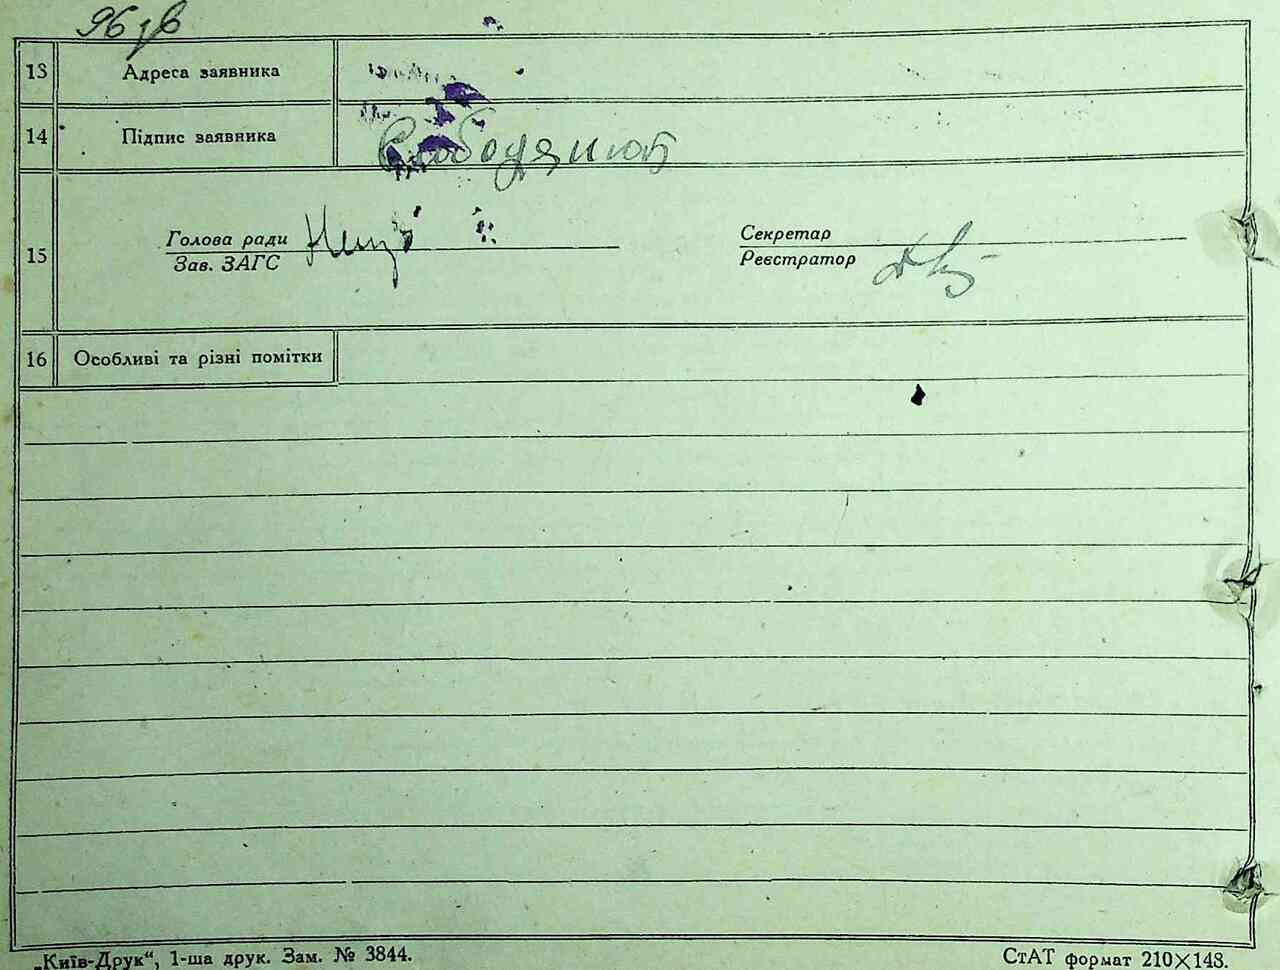 96 зв
13 Адреса заявника
14 Підпис заявника Слободянюк
15 Голова ради
Зав. ЗАГС
Секретар
Реєстратор
16 Особливі та різні помітки
„Київ-Друк“, 1-ша друк. Зам. № 3844.
СтАТ формат 210×148.